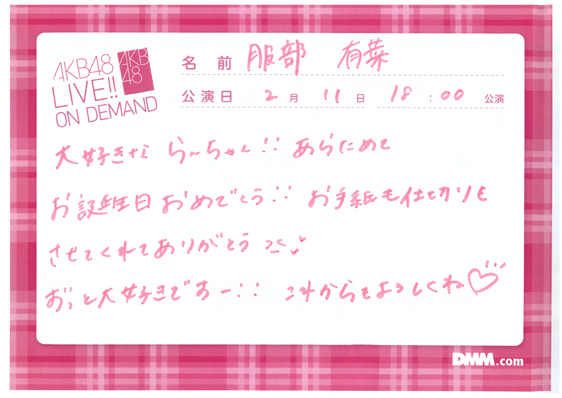 AKB48
LIVE!!
ON DEMAND
AKB
48
名前 服部 有菜
公演日 2月 11日 18:00 公演
大好きな らーちゃん!! あらためて
お誕生日おめでとう!! お手紙も仕切りも
させてくれてありがとう
ずっと大好きですー!! これからもよろしくね♡
DMM.com